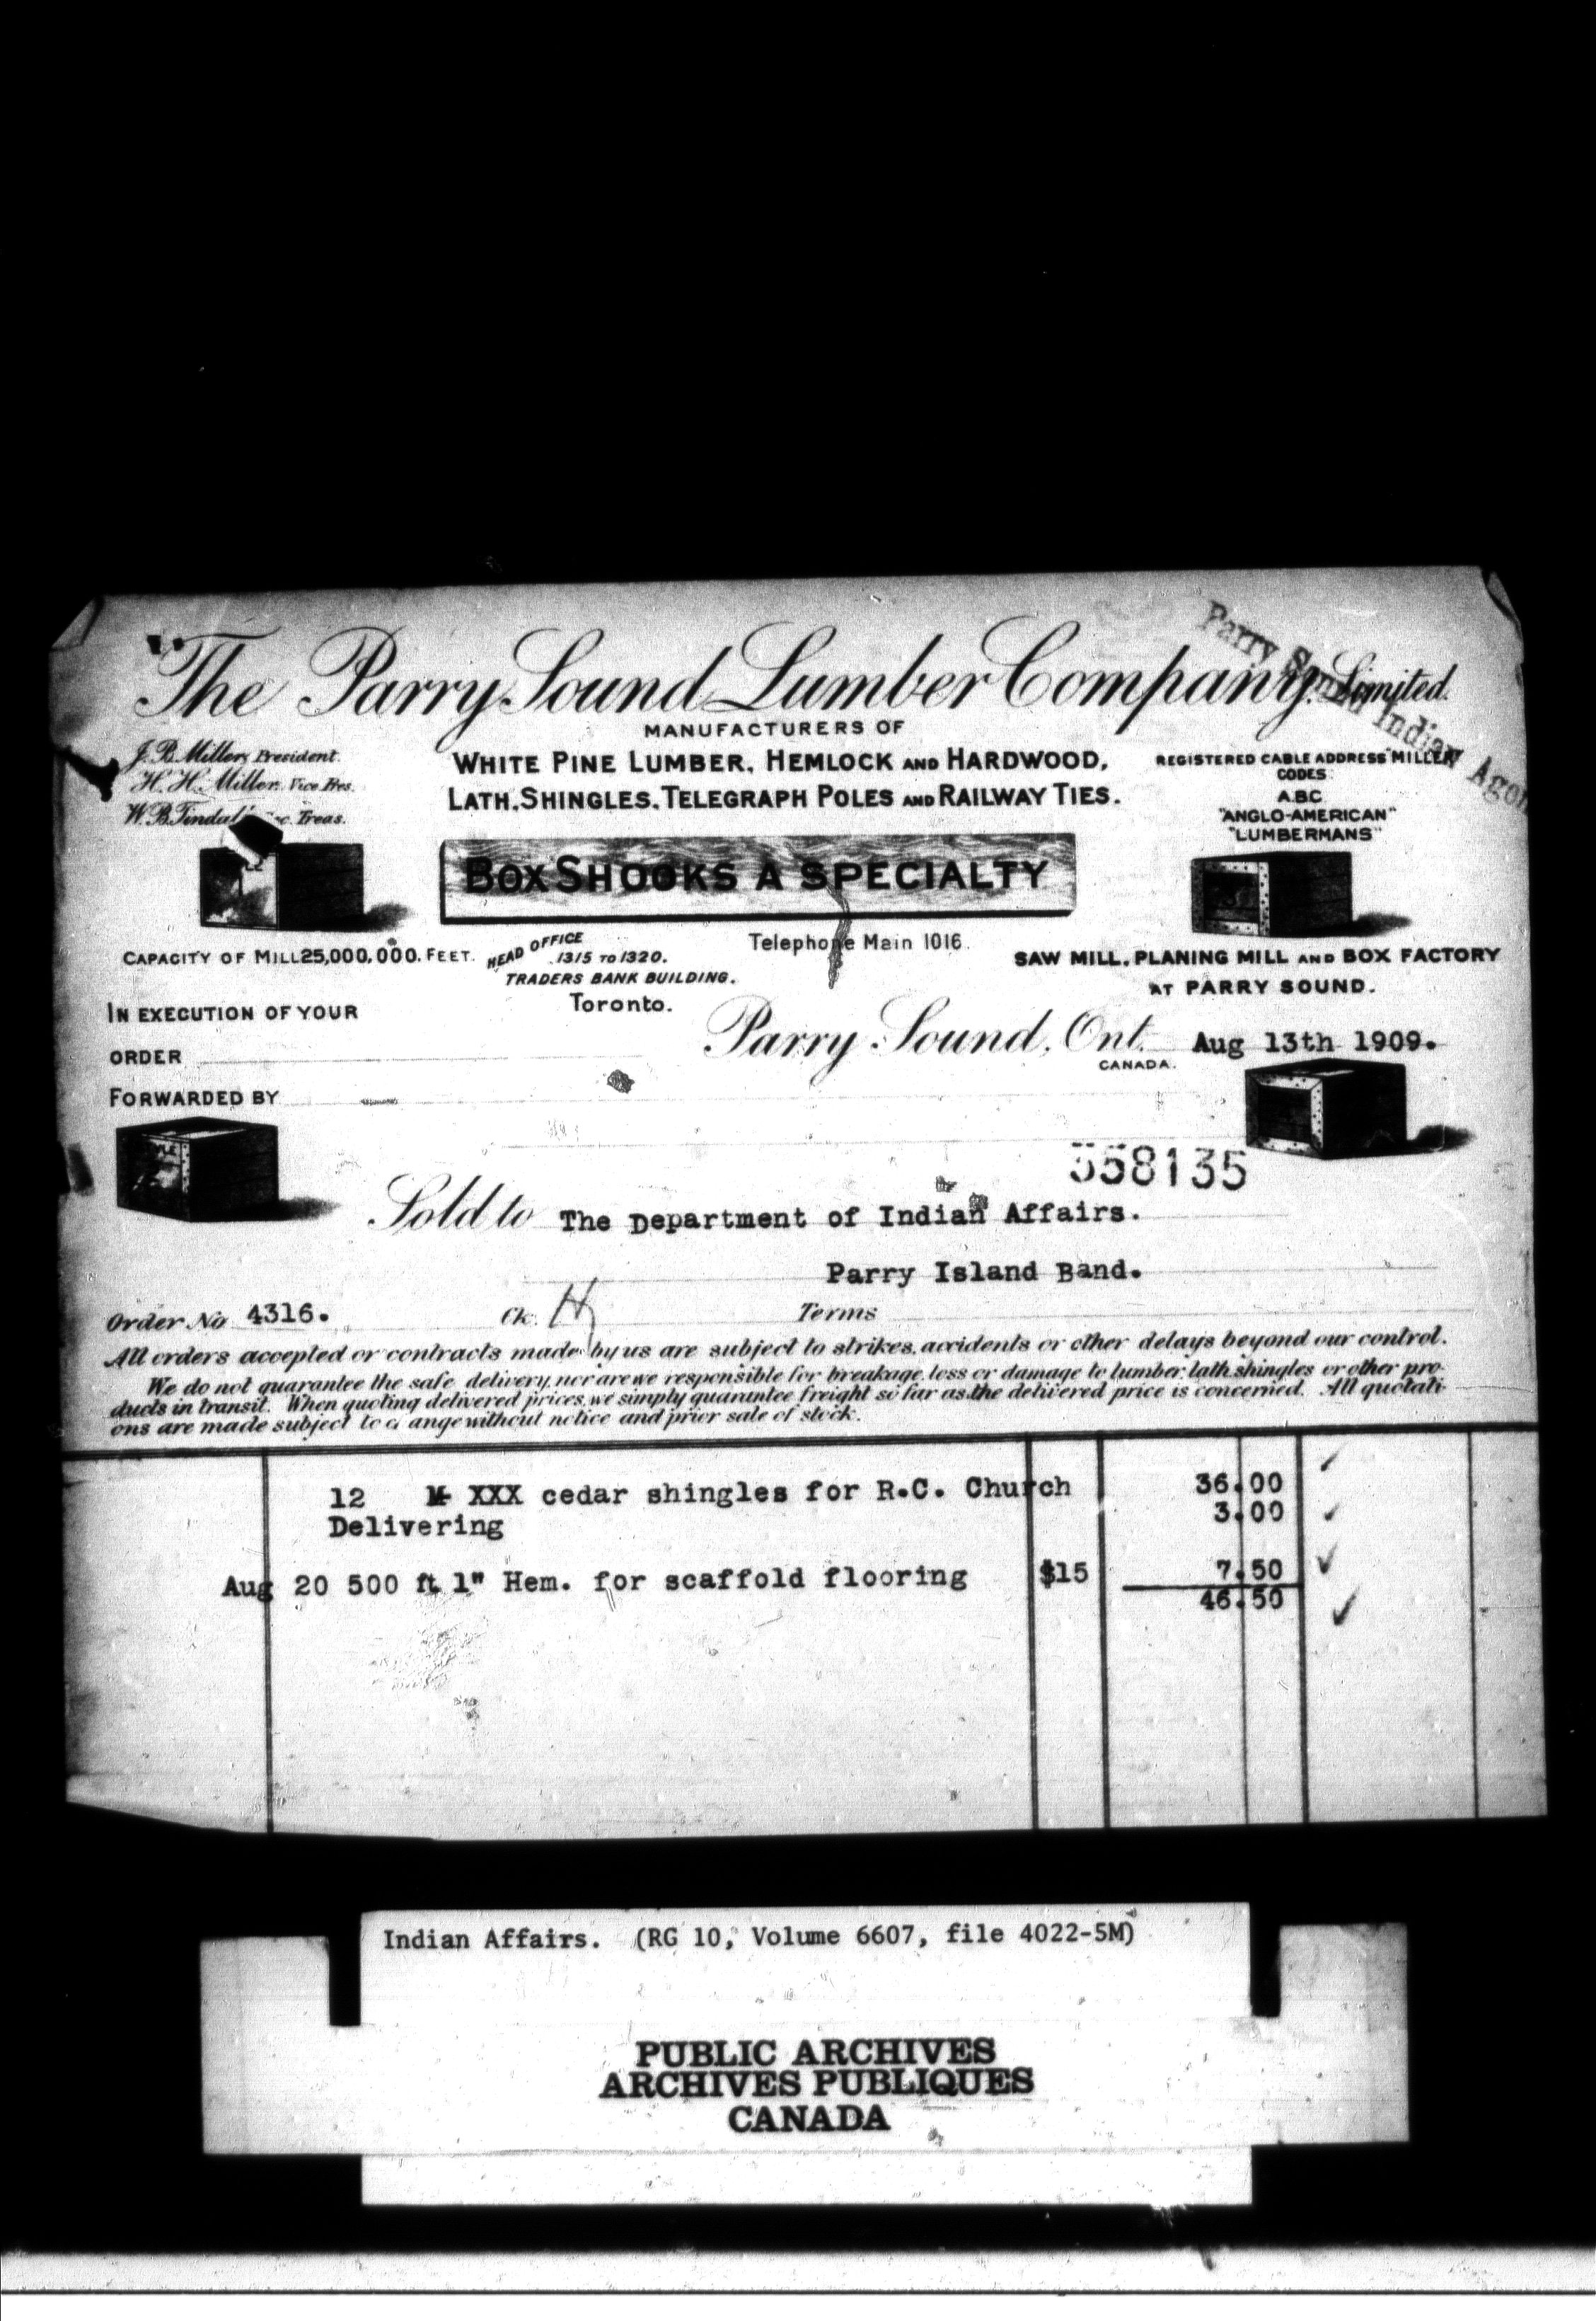 The Parry Sound Lumber Company, Limited.
Parry Sound Indian
MANUFACTURERS OF
J. B. Miller, President.
H. H. Miller, Vice Pres.
W. B. Tindall Treas.
WHITE PINE LUMBER, HEMLOCK AND HARDWOOD,
LATH, SHINGLES, TELEGRAPH POLES AND RAILWAY TIES.
REGISTERED CABLE ADDRESS "MILLER"
CODES
A.B.C
"ANGLO-AMERICAN"
"LUMBERMANS"
BOX SHOOKS A SPECIALTY
CAPACITY OF MILL 25,000,000. FEET.
HEAD OFFICE
1315 TO 1320.
TRADERS BANK BUILDING.
Toronto.
Telephone Main 1016.
SAW MILL, PLANING MILL AND BOX FACTORY
AT PARRY SOUND.
IN EXECUTION OF YOUR
ORDER
Parry Sound, Ont. Aug 13th 1909.
CANADA.
FORWARDED BY
358135
Sold to The Department of Indian Affairs.
Parry Island Band.
Order No 4316. Ck. Terms
All orders accepted or contracts made by us are subject to strikes, accidents or other delays beyond our control.
We do not guarantee the safe delivery, nor are we responsible for breakage, loss or damage to lumber, lath, shingles or other pro-
ducts in transit. When quoting delivered prices, we simply guarantee freight so far as the delivered price is concerned. All quotati-
ons are made subject to c ange without notice and prior sale of stock.
12 M XXX cedar shingles for R.C. Church 36.00
Delivering 3.00
Aug 20 500 ft 1" Hem. for scaffold flooring $15 7.50
46.50
Indian Affairs. (RG 10, Volume 6607, file 4022-5M)
PUBLIC ARCHIVES
ARCHIVES PUBLIQUES
CANADA